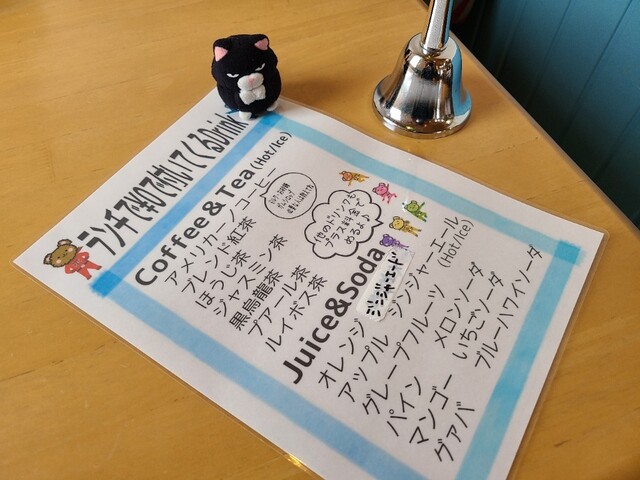 ランチで¥0で付いてくるDrink
Coffee & Tea (Hot/Ice)
アメリカーノコーヒー
ブレンド紅茶
ほうじ茶
ジャスミン茶
黒烏龍茶
プアール茶
ルイボス茶
他のドリンクも
プラス料金で
めるよ♪
Juice&Soda
オレンジ
アップル
グレープフルーツ
パイン
マンゴー
グァバ
ジンジャーエール
(Hot/Ice)
メロンソーダ
いちごソーダ
ブルーハワイソーダ